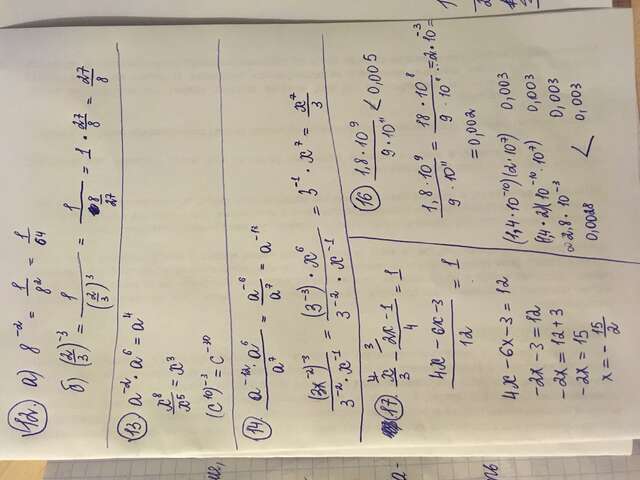 12. а) 8^-2 = 1/8^2 = 1/64
б) (2/3)^-3 = 1/(2/3)^3 = 1/(8/27) = 1 · 27/8 = 27/8
13 a^-2 · a^6 = a^4
x^8/x^5 = x^3
(c^10)^-3 = c^-30
14 a^-12 · a^6/a^7 = a^-6/a^7 = a^-13
(3x^-2)^-3/3^-2 · x^-1 = (3^-3) · x^6/3^-2 · x^-1 = 3^-1 · x^7 = x^7/3
17 4 3
x/3 - 2x - 1/4 = 1
4x - 6x - 3/12 = 1
4x - 6x - 3 = 12
-2x - 3 = 12
-2x = 12 + 3
-2x = 15
x = - 15/2
16 1,8 · 10^9/9 · 10^11 < 0,005
1,8 · 10^9/9 · 10^11 = 18 · 10^8/9 · 10^11 = 2 · 10^-3 =
= 0,002
(1,4 · 10^-10)(2 · 10^7) 0,003
(1,4 · 2)(10^-10 · 10^7) 0,003
2,8 · 10^-3 0,003
0,0028 < 0,003